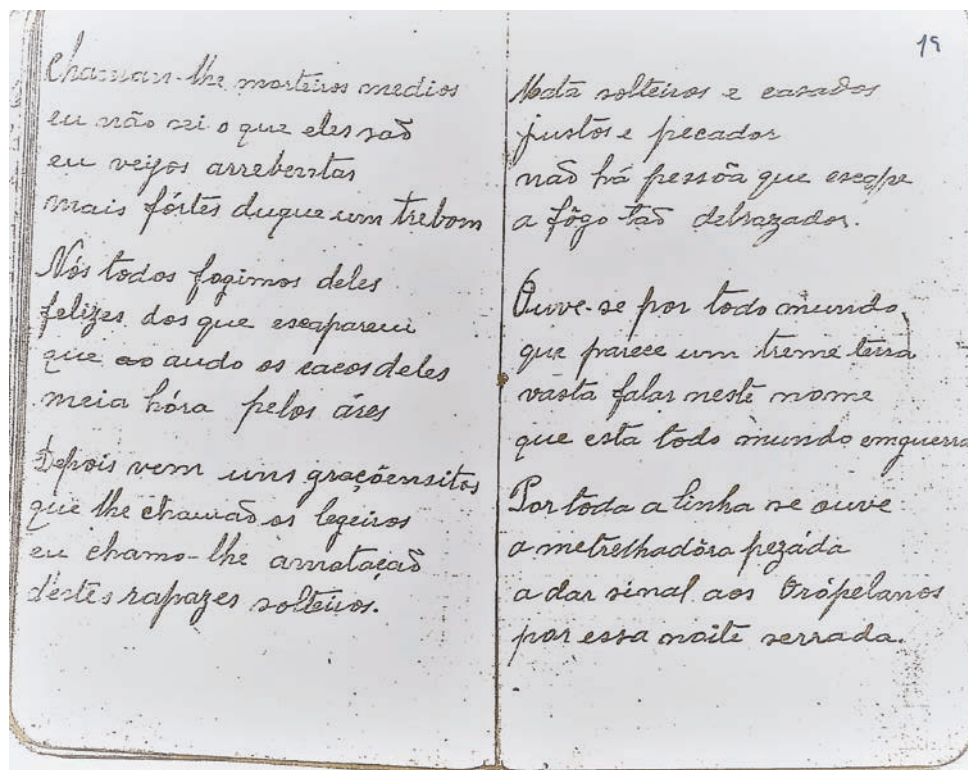 Chaman-lhe morteiros medios
eu não sei o que eles saõ
eu vejos arrebentas
mais fórtes duque um trebom
Nós todos fogimos deles
felizes dos que escaparem
que ao audo os cacos deles
meia hóra pelos áres
Depois vem uns graçõensitos
que lhe chamaõ os legeiros
eu chamo-lhe amataçaõ
destes rapazes solteiros.
19
Mata solteiros e casados
justos e pecador
naõ há pessõa que escape
a fôgo taõ debrazador.
Ouve-se por todo mundo
que parece um treme terra
vasta falar neste nome
que esta todo mundo emguerra
Por toda a linha se ouve
a metrelhadôra pezáda
a dar sinal aos Orópelanos
por essa noite serrada.